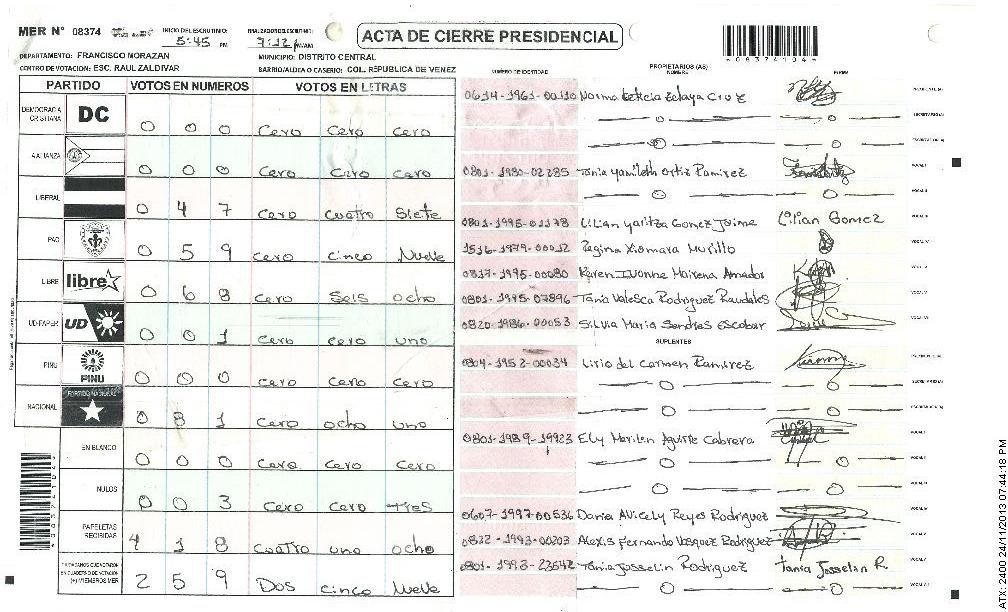 MER N° 08374
INICIO DEL ESCRUTINIO: 5:45 PM
FINALIZADO EL ESCRUTINIO: PM/AM
ACTA DE CIERRE PRESIDENCIAL
DEPARTAMENTO: FRANCISCO MORAZAN
MUNICIPIO: DISTRITO CENTRAL
CENTRO DE VOTACION: ESC. RAUL ZALDIVAR
BARRIO/ALDEA O CASERIO: COL. REPUBLICA DE VENEZ
PARTIDO VOTOS EN NUMEROS VOTOS EN LETRAS
DEMOCRACIA CRISTIANA DC 0 0 0 Cero Cero Cero
ALIANZA 0 0 0 Cero Cero Cero
LIBERAL 0 4 7 Cero Cuatro Siete
PAC 0 5 9 Cero cinco Nueve
LIBRE libre 0 6 8 Cero Seis ocho
UD-FAPER UD 0 0 1 Cero cero uno
PINU PINU 0 0 0 Cero Cero Cero
NACIONAL PARTIDO NACIONAL 0 8 1 Cero ocho uno
EN BLANCO 0 0 0 Cero Cero Cero
NULOS 0 0 3 Cero Cero Tres
PAPELETAS RECIBIDAS 4 1 8 Cuatro uno ocho
(+) MIEMBROS MER 2 5 9 Dos cinco Nueve
NUMERO DE IDENTIDAD PROPIETARIOS (AS) NOMBRE FIRMA
0614-1961-00110 Norma Leticia Zelaya Cruz PRESIDENTE(A)
SECRETARIO(A)
ESCRUTADOR(A)
0801-1980-02285 Tania Yamileth Ortiz Ramirez VOCAL I
VOCAL II
0801-1995-01178 Lilian Yaritza Gomez Jaime Lilian Gomez
1516-1979-00012 Regina Xiomara Murillo
0817-1995-00080 Karen Ivonne Mairena Amador
0801-1995-07896 Tania Valesca Rodriguez Raudales
0820-1986-00053 Silvia Maria Sandres Escobar
SUPLENTES
0804-1952-00034 Lirio del Carmen Ramirez
0801-1989-19923 Ely Marilen Aguirre Cabrera
0607-1997-00536 Dania Alicely Reyes Rodriguez
0822-1993-00203 Alexis Fernando Vasquez Rodriguez
0801-1993-23542 Tania Josselin Rodriguez Tania Josselin R.
ATX-2400 24/11/2013 07:44:18 PM